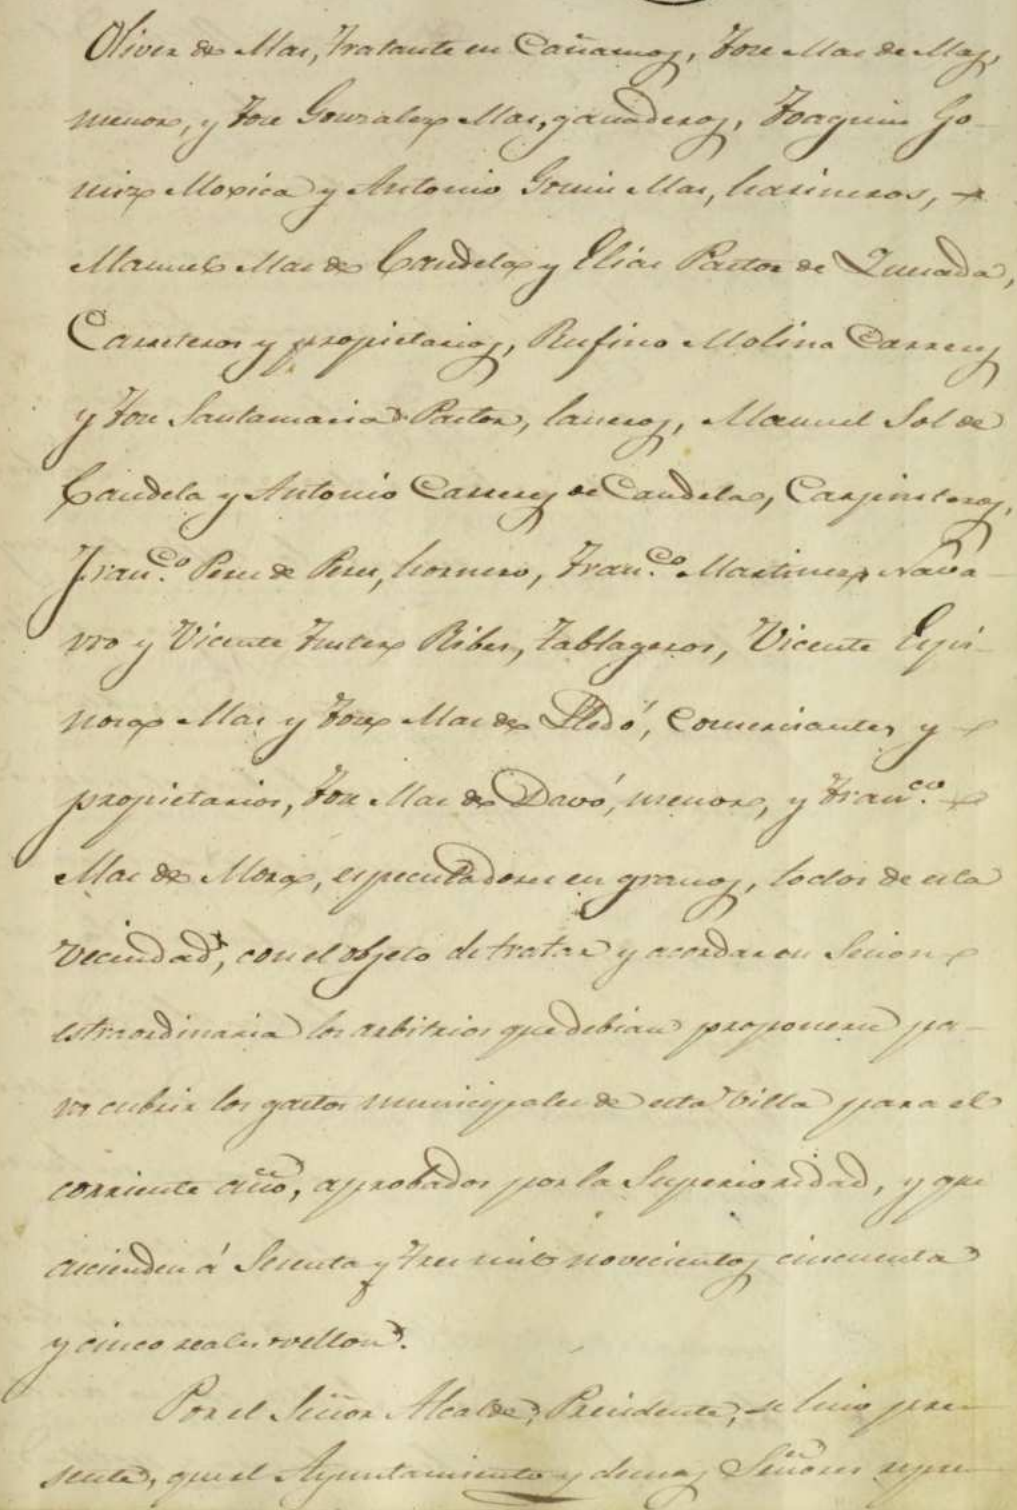 Oliver de Mas, tratante en Cañamos, Jose Mas de Mas,
menor, y Jose Gonzalez Mas, ganaderos, Joaquin Go-
miz Moxica y Antonio Gomis Mas, harineros,
Manuel Mas de Candela y Elias Pastor de Quesada,
Carreteros y propietarios, Rufino Molina Carreres
y Jose Santamaria Pastor, laneros, Manuel Sol de
Candela y Antonio Carreres de Candela, Carpinteros,
Fran.co Peres de Peres, hornero, Fran.co Martinez Nava-
rro y Vicente Fuster Ribes, tablageros, Vicente Espi-
nosa Mas y Jose Mas de Lledó, Comerciantes y
propietarios, Jose Mas de Davó, menor, y Fran.co
Mas de Mora, especuladores en granos, todos de esta
Vecindad, con el objeto de tratar y acordar en Sesion
estraordinaria los arbitrios que debian proponerse pa-
ra cubrir los gastos municipales de esta Villa para el
corriente año, aprobados por la Superioridad, y que
ascienden á Sesenta y tres mil novecientos cincuenta
y cinco reales vellon.
Por el Señor Alcalde, Presidente, se hizo pre-
sente, que el Ayuntamiento y demas Señores repre-